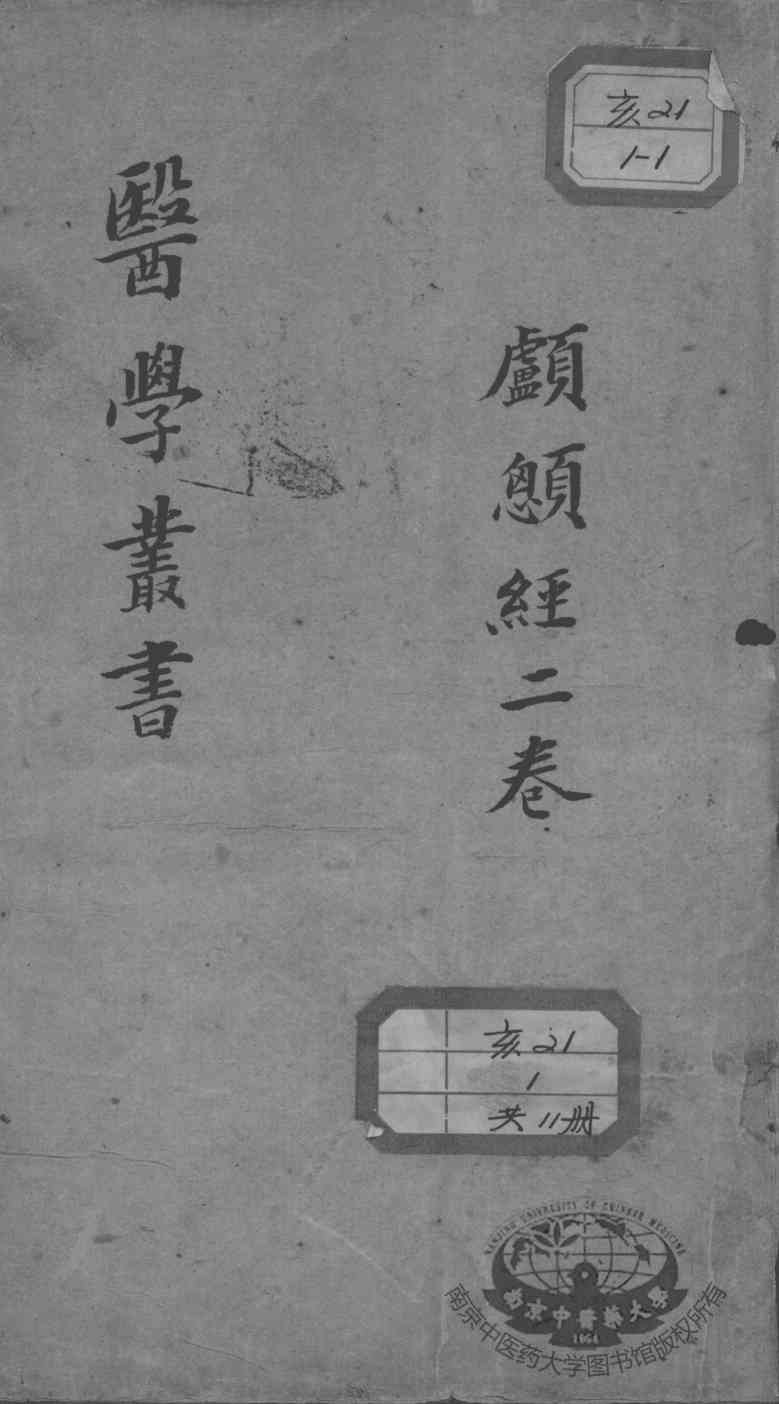 亥21
1-1
顱顖經二卷
醫學叢書
亥21
1
共11册
NANJING UNIVERSITY OF CHINESE MEDICINE
南京中醫藥大學
1954
南京中医药大学图书馆版权所有